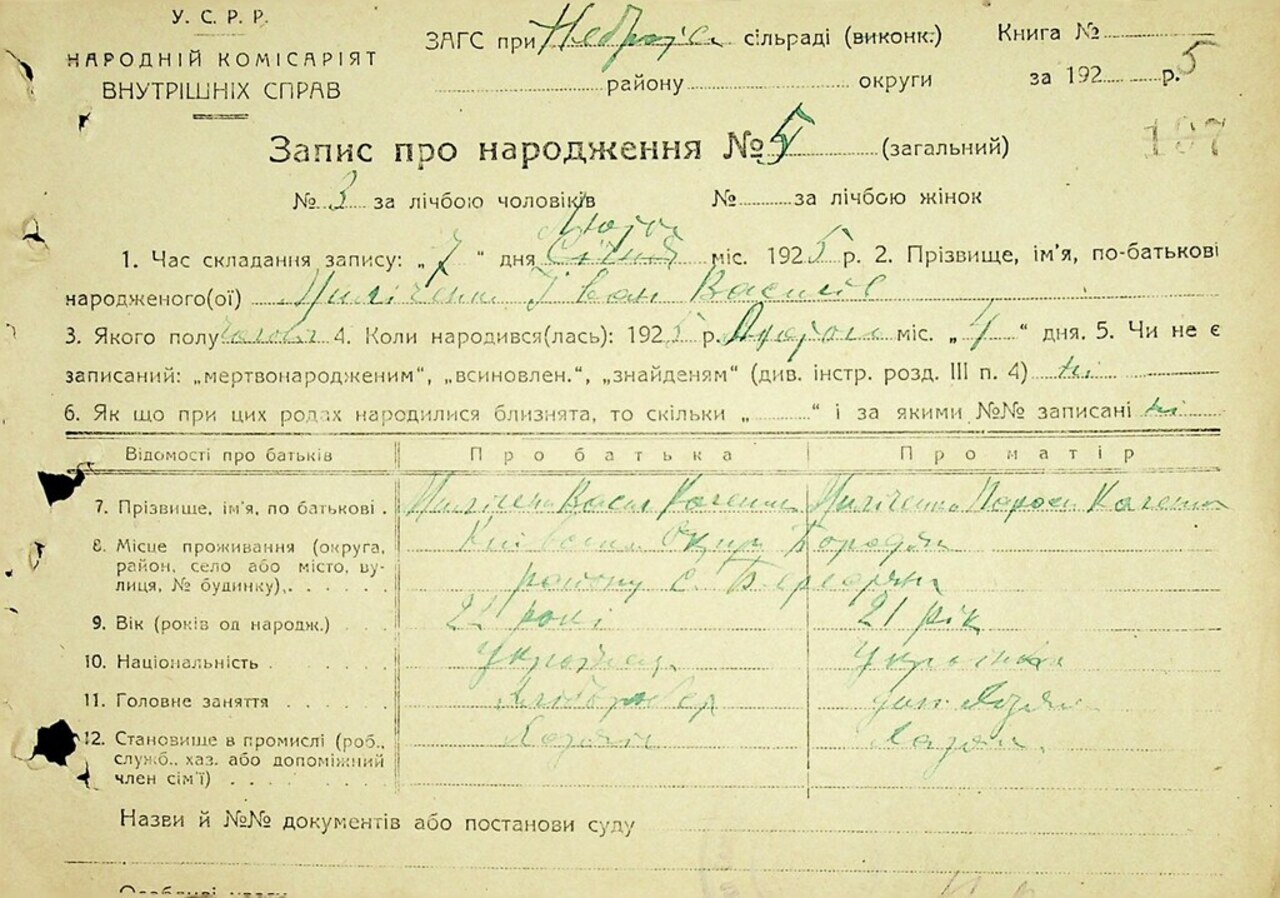 У. С. Р. Р.
НАРОДНІЙ КОМІСАРІЯТ
ВНУТРІШНІХ СПРАВ
ЗАГС при сільраді (виконк.) Книга №
району округи за 192 5 р.
Запис про народження № 5 (загальний)
197
№ 3 за лічбою чоловіків № за лічбою жінок
Лютого
1. Час складання запису: „ 7 “ дня Січня міс. 1925 р. 2. Прізвище, ім'я, по-батькові
народженого(ої) Іван Василів
3. Якого полу чолов. 4. Коли народився(лась): 1925 р. Лютого міс. „ 4 “ дня. 5. Чи не є
записаний: „мертвонародженим“, „всиновлен.“, „знайденям“ (див. інстр. розд. III п. 4) ні
6. Як що при цих родах народилися близнята, то скільки „ “ і за якими №№ записані ні
Відомості про батьків Про батька Про матір
7. Прізвище, ім'я, по батькові . Васил
8. Місце проживання (округа, Київської Округ Бородян
район, село або місто, ву-
лиця, № будинку), . . . . . . району с.
9. Вік (років од народж.) . . . 22 роки 21 рік
10. Національність . . . . . Українец Українка
11. Головне заняття . . . . . Хлібороб
12. Становище в промислі (роб.,
служб., хаз. або допоміжний
член сім'ї) . . . . . . . .
Назви й №№ документів або постанови суду